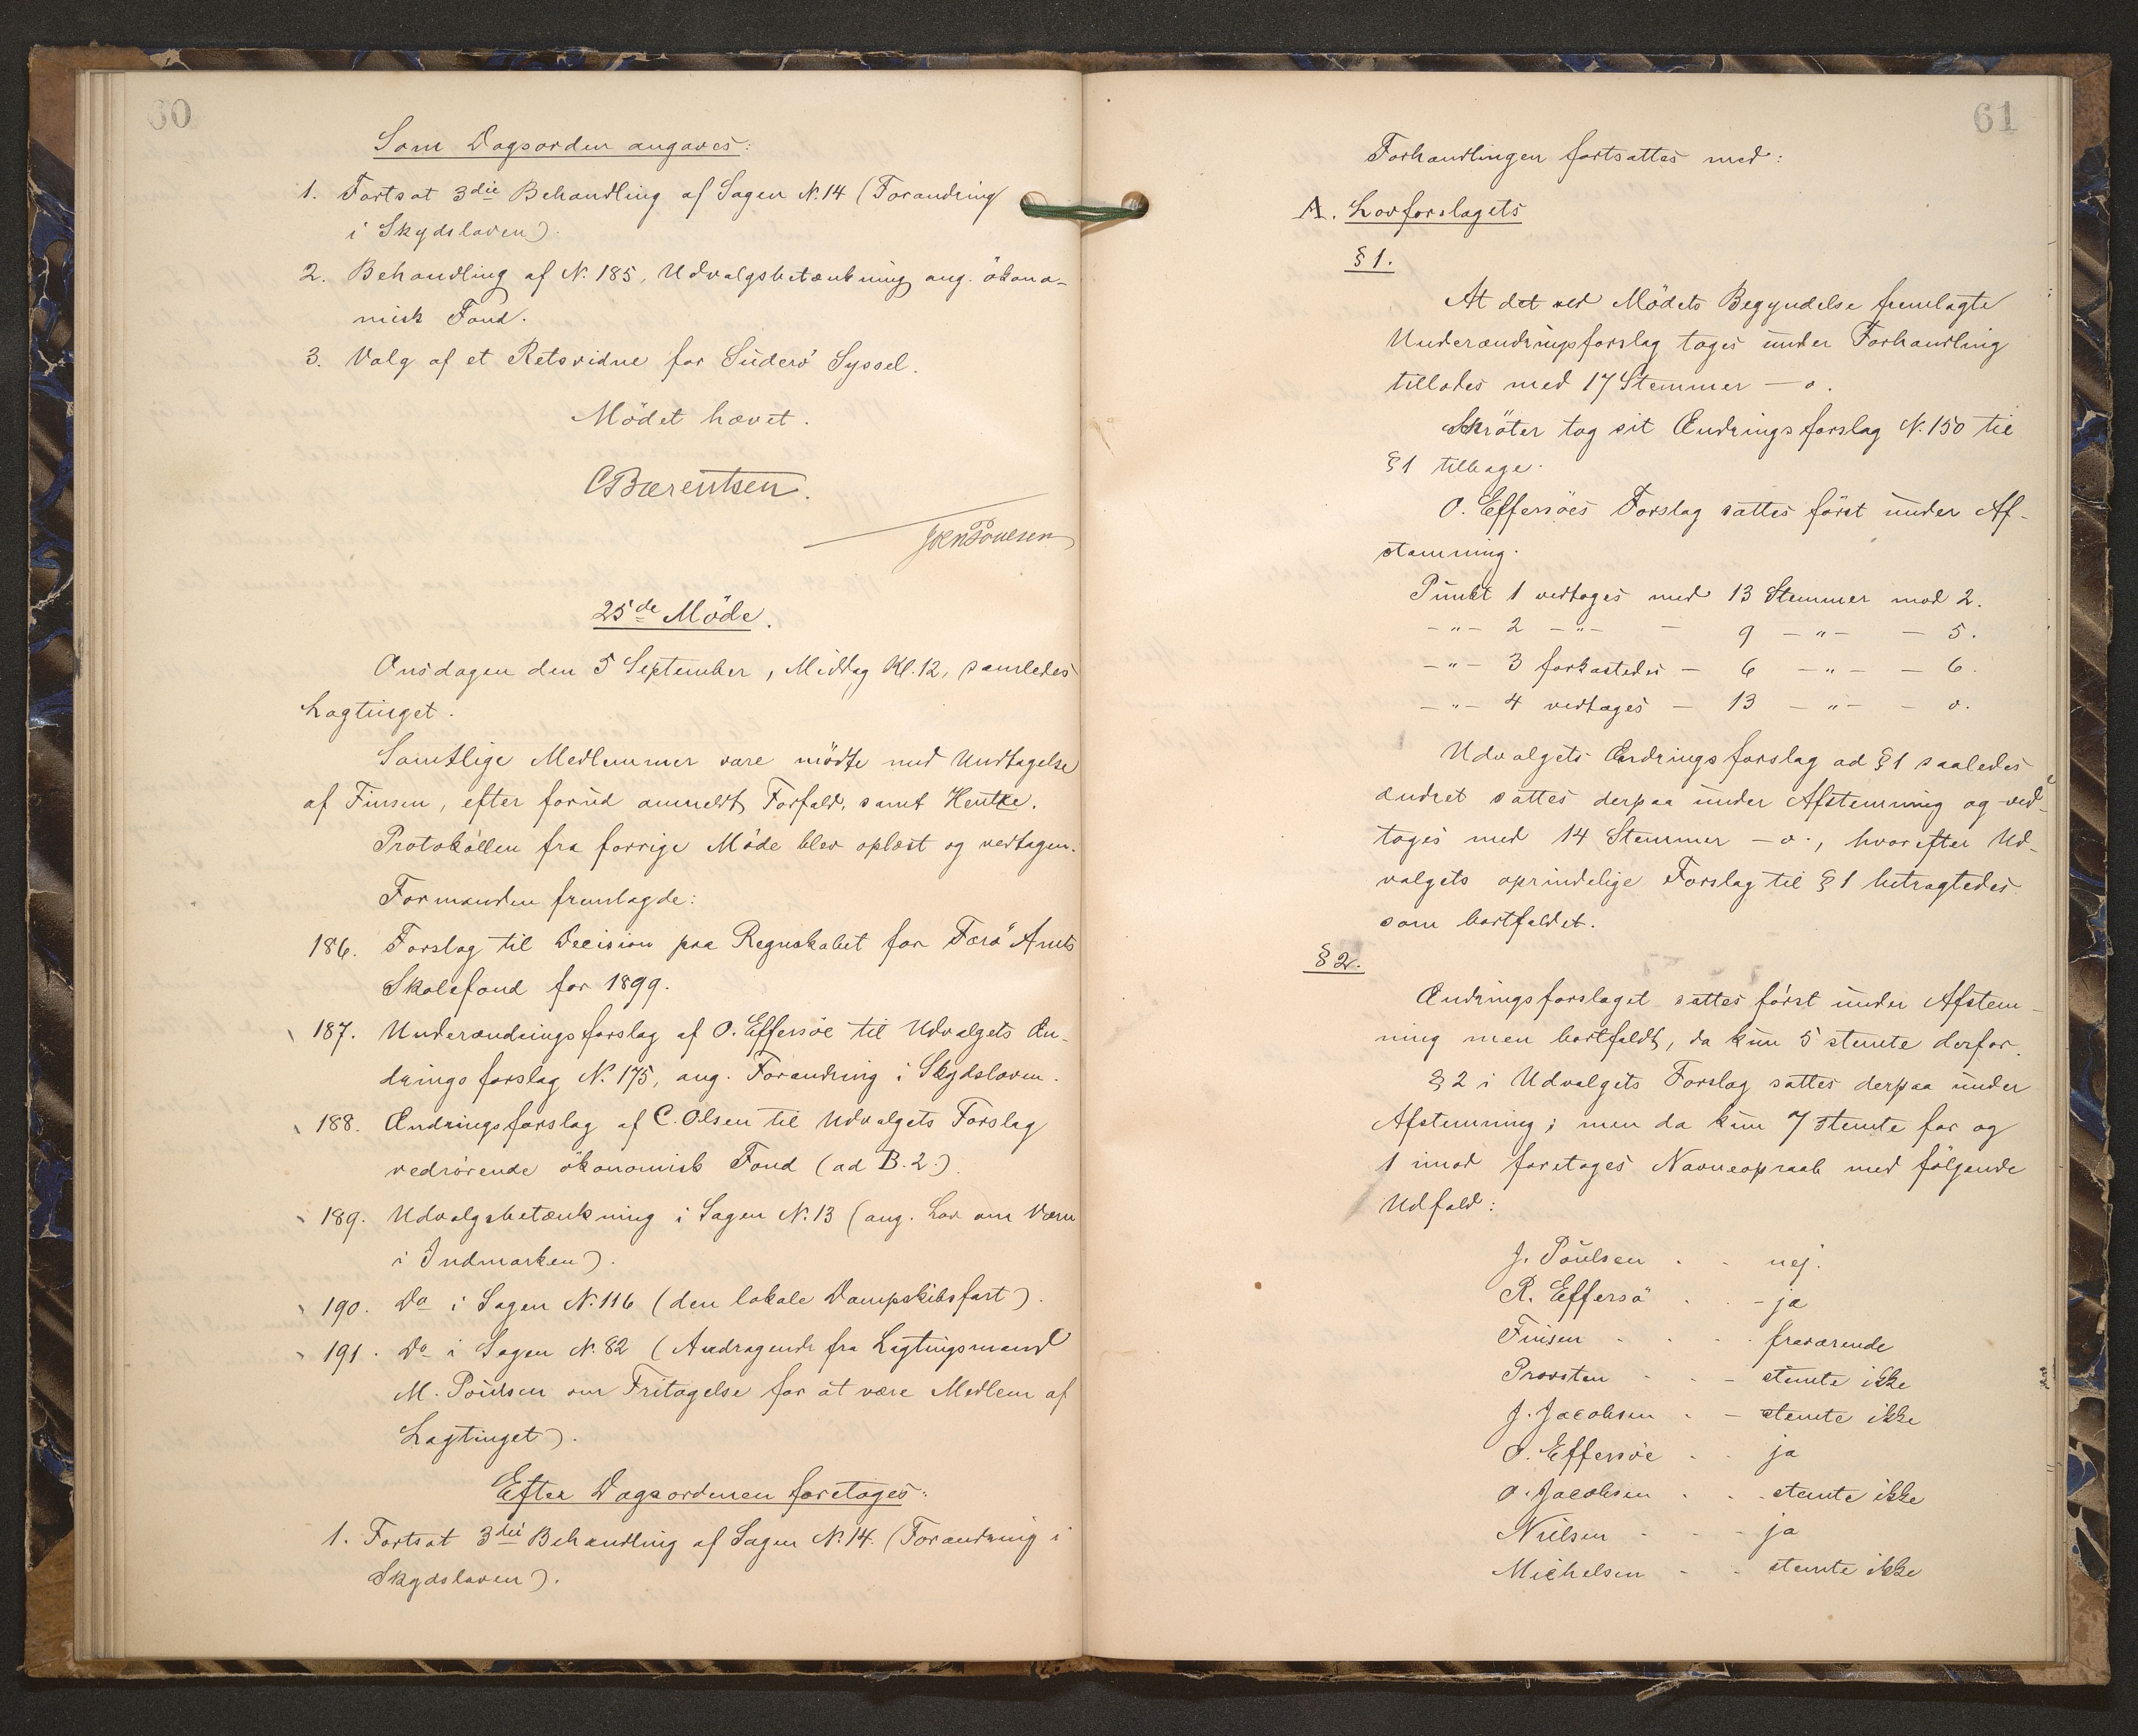 60
Som Dagsorden angaves:
1. Fortsat 3die Behandling af Sagen N. 14 (Forandring
i Skydsloven).
2. Behandling af N. 185, Udvalgsbetænkning ang. økono-
misk Fond.
3. Valg af et Retsvidne for Suderø Syssel.
Mödet hævet.
CBærentsen.
Joen Poulsen
25de Möde.
Onsdagen den 5 September, Middag Kl. 12, samledes
Lagtinget.
Samtlige Medlemmer vare mödte med Undtagelse
af Finsen, efter forud anmeldt Forfald, samt Hentze.
Protokollen fra forrige Möde blev oplæst og vedtagen.
Formanden fremlagde:
186. Forslag til Decision paa Regnskabet for Færö Amts
Skolefond for 1899.
187. Underændringsforslag af O. Effersöe til Udvalgets Æn-
dringsforslag N. 175, ang. Forandring i Skydsloven.
188. Ændringsforslag af C. Olsen til Udvalgets Forslag
vedrörende ökonomisk Fond (ad B. 2.).
189. Udvalgsbetænkning i Sagen N. 13 (ang. Lov om Værn
i Indmarken).
190. Do i Sagen N. 116 (den lokale Dampskibsfart).
191. Do i Sagen N. 82 (Andragende fra Lagtingsmand
M. Poulsen om Fritagelse for at være Medlem af
Lagtinget).
Efter Dagsordenen foretoges:
1. Fortsat 3die Behandling af Sagen N. 14. (Forandring i
Skydsloven).
61
Forhandlingen fortsattes med:
A. Lovforslagets
§ 1.
At det ved Mödets Begyndelse fremlagte
Underændringsforslag toges under Forhandling
tillodes med 17 Stemmer — o.
Skröter tog sit Ændringsforslag N. 150 til
§ 1 tilbage.
O. Effersöes Forslag sattes först under Af-
stemning.
Punkt 1 vedtoges med 13 Stemmer mod 2.
—"— 2 —"— — 9 —"— — 5.
—"— 3 forkastedes — 6 —"— — 6.
—"— 4 vedtoges — 13 —"— — o.
Udvalgets Ændringsforslag ad § 1 saaledes
ændret sattes derpaa under Afstemning og ved-
toges med 14 Stemmer — o., hvorefter Ud-
valgets oprindelige Forslag til § 1 betragtedes
som bortfaldet.
§ 2.
Ændringsforslaget sattes först under Afstem-
ning men bortfaldt, da kun 5 stemte derfor.
§ 2 i Udvalgets Forslag sattes derpaa under
Afstemning; men da kun 7 stemte for og
1 imod foretoges Navneopraab med fölgende
Udfald:
J. Poulsen . . nej.
R. Effersö . . - ja
Finsen . . . . fraværende
Provsten - - - stemte ikke
J. Jacobsen . - stemte ikke
O. Effersöe . . ja
O. Jacobsen . . stemte ikke
Nielsen - - - ja
Michelsen - - stemte ikke